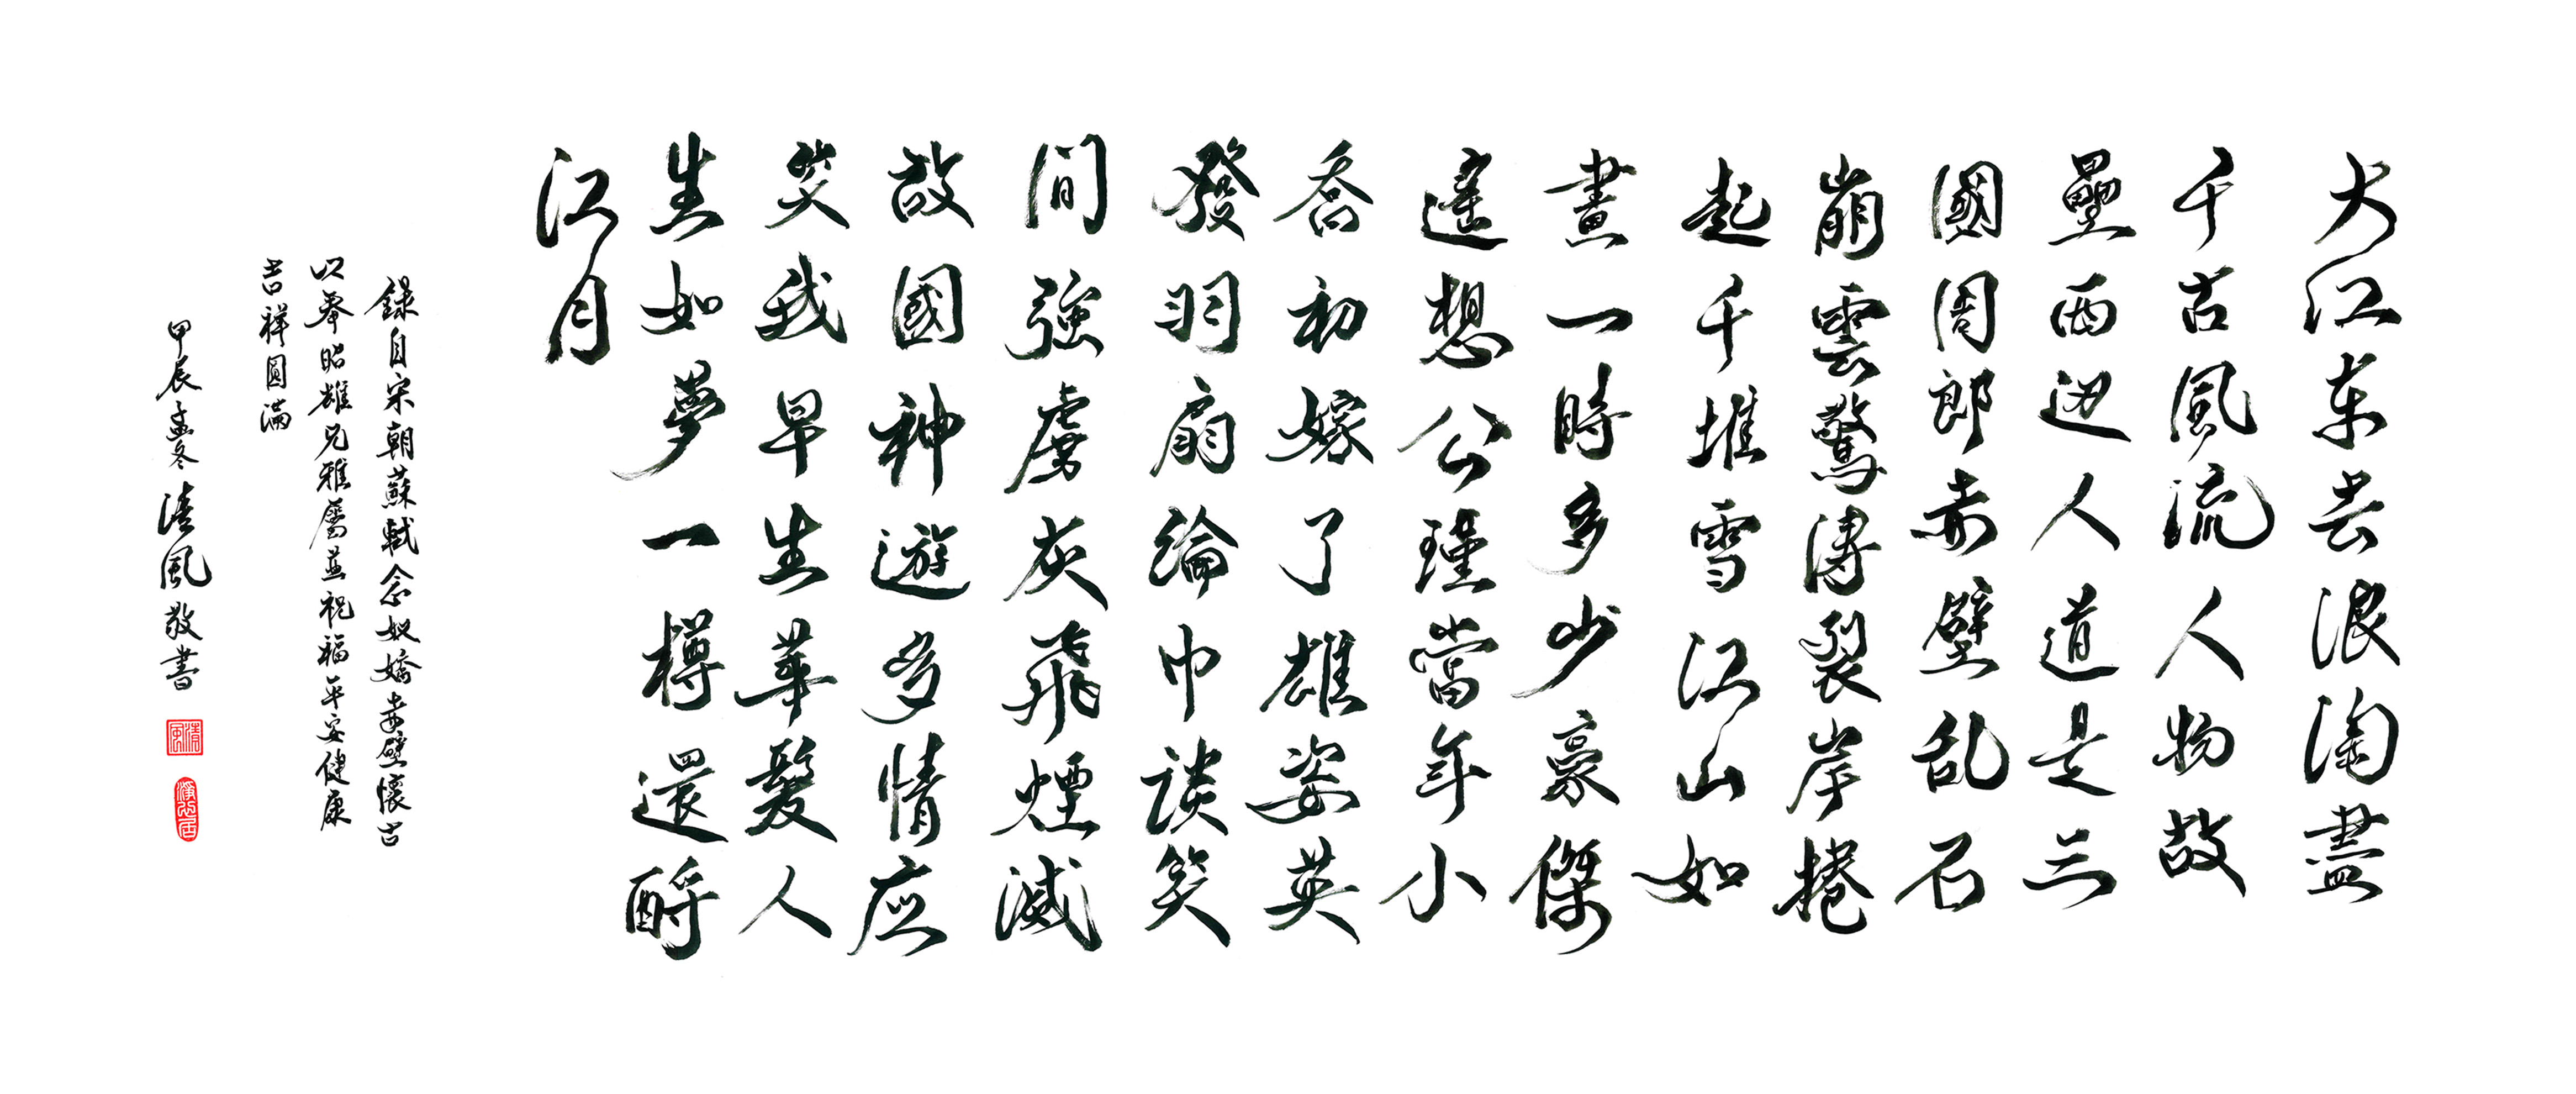 大江东去浪淘盡
千古風流人物故
壘西边人道是三
國周郎赤壁乱石
崩雲驚濤裂岸捲
起千堆雪江山如
畫一時多少豪傑
遙想公瑾當年小
喬初嫁了雄姿英
發羽扇綸巾談笑
間強虜灰飛煙滅
故國神遊多情应
笑我早生華髮人
生如夢一樽還酹
江月
錄自宋朝蘇軾念奴嬌赤壁懷古
以奉昭雄兄雅屬並祝福平安健康
吉祥圓滿
甲辰孟冬清風敬書
清風
淨心居